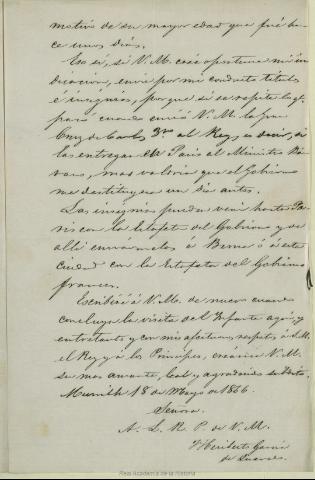 motivo de su mayor edad que fué ha-
ce unos dias.
Eso si, si V. M. cree oportuna mi in-
dicacion, envie por mi conducto titulos
é insignias, porque si se repite lo q.e
pasó cuando envió V. M. la Gran
Cruz de Carlos 3.ro al Rey, es decir, si
las entregan en Paris al Ministro
mas valdria que el Gobierno
me destituyera un dia antes.
Las insignias pueden venir hasta Pa-
ris con la estafeta del Gobierno y de
alli enviarmelas á Berna ó á esta
Ciudad con la Estafeta del Gobierno
frances.
Escribiré á V. M. de nuevo cuando
concluya la visita del Infante aqui, y
entretanto y con mis afectuosos respetos á S. M.
el Rey y á los Principes, creame V. M.
su mas amante, leal y agradecido subdito.
Munich 18 de Mayo de 1866.
Señora.
A. L. R. P. de V. M.
Heriberto Garcia
de Quevedo.
Real Academia de la Historia